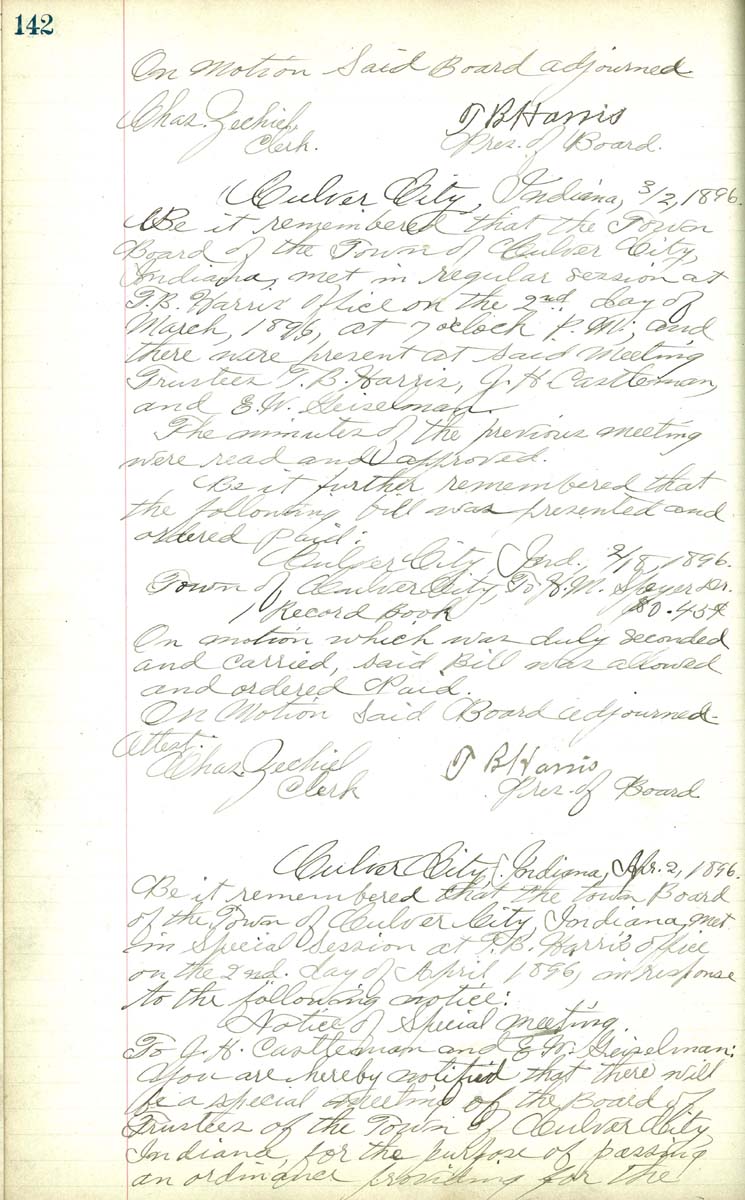 142
On Motion Said Board adjourned
Chas. Zechiel, T B Harris
Clerk. Pres. of Board.
Culver City, Indiana, 3/2, 1896.
Be it remembered that the Town
Board of the Town of Culver City,
Indiana, met in regular session at
T.B. Harris' office on the 2nd. day of
March, 1896, at 7 o'clock P.M., and
there ware present at said Meeting
Trustees T.B. Harris, J.H. Castleman,
and E.W. Geiselman.
The minutes of the previous meeting
were read and approved.
Be it further remembered that
the following bill was presented and
ordered paid:
Culver City, Ind., 2/18, 1896.
Town of Culver City, To H.M. Speyer Dr.
1 Record Book $0.45¢
On motion which was duly seconded
and carried, said Bill was allowed
and ordered Paid.
On Motion Said Board adjourned.
Attest:
Chas. Zechiel T B Harris
Clerk Pres. of Board
Culver City, Indiana, Apr. 2, 1896.
Be it remembered that the town Board
of the Town of Culver City, Indiana, met
in Special Session at T.B. Harris' office
on the 2nd. day of April 1896, in response
to the following notice:
Notice of Special Meeting.
To J.H. Castleman and E.W. Geiselman:
You are hereby notified that there will
be a special meeting of the Board of
Trustees of the Town of Culver City,
Indiana, for the purpose of passing
an ordinance providing for the